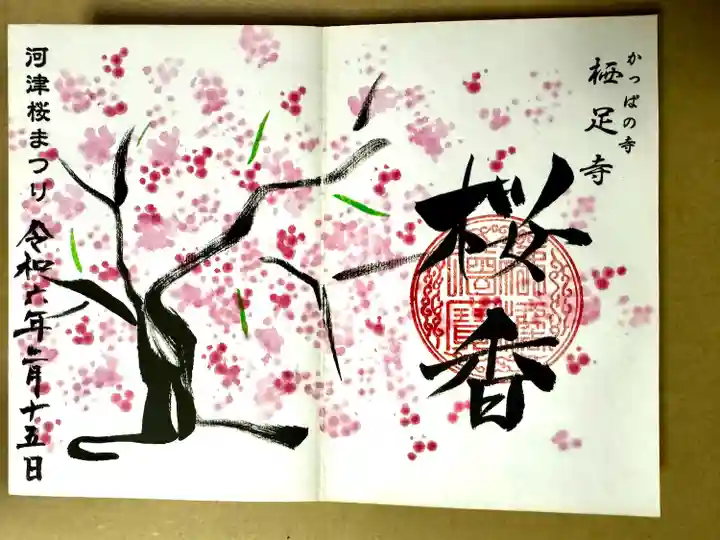 かっぱの寺
栖足寺
桜香
河津桜まつり 令和六年二月十五日